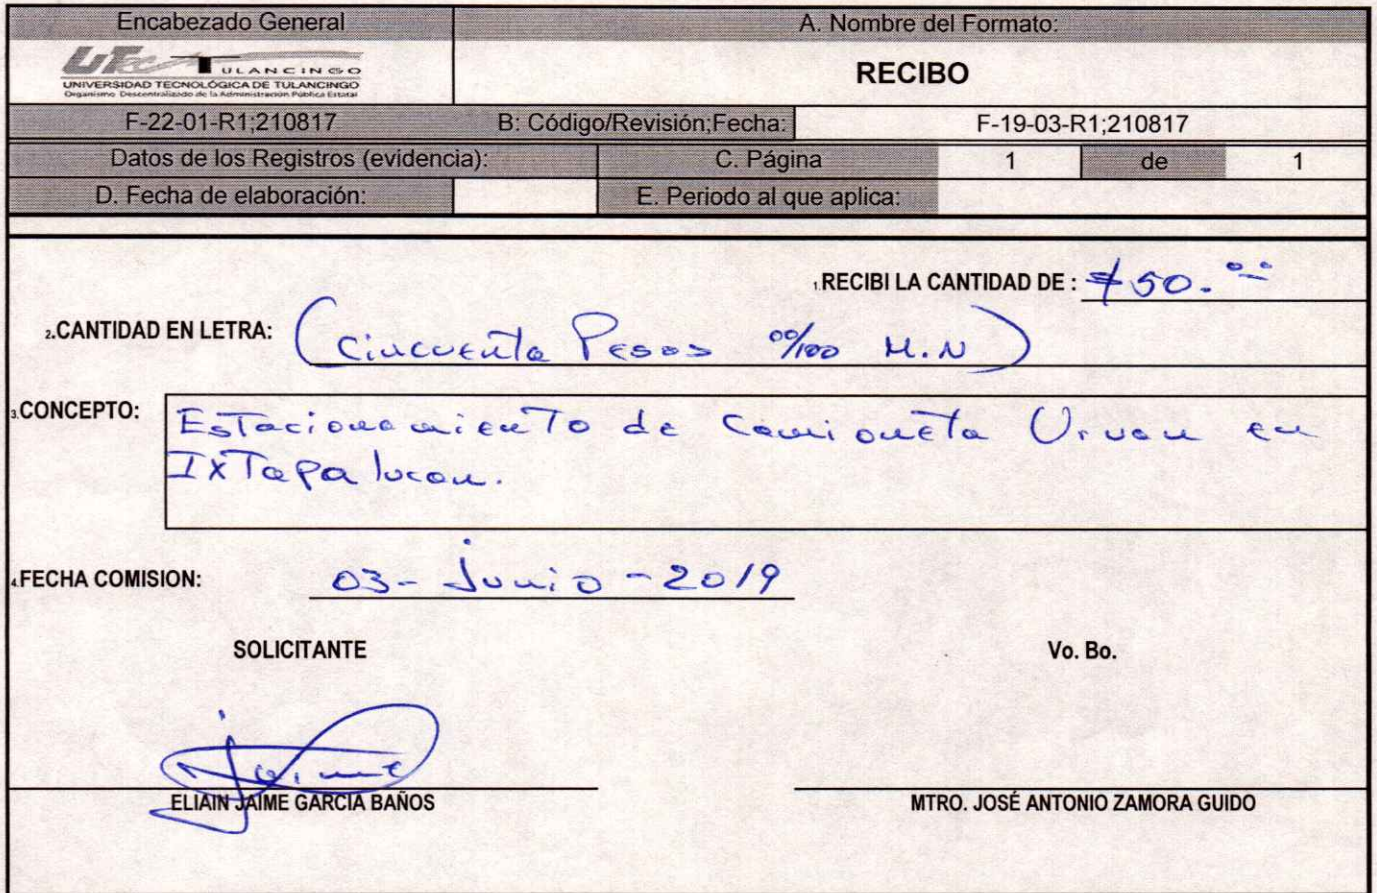 Encabezado General
A. Nombre del Formato:
UTec TULANCINGO
UNIVERSIDAD TECNOLÓGICA DE TULANCINGO
Organismo Descentralizado de la Administración Pública Estatal
RECIBO
F-22-01-R1;210817
B: Código/Revisión;Fecha:
F-19-03-R1;210817
Datos de los Registros (evidencia):
C. Página
1 de 1
D. Fecha de elaboración:
E. Periodo al que aplica:
1.RECIBI LA CANTIDAD DE : $ 50.00
2.CANTIDAD EN LETRA: (Cincuenta Pesos 00/100 M.N)
3.CONCEPTO: Estacionamiento de Camioneta Urvan en
IxTapalucan.
4.FECHA COMISION: 03-Junio-2019
SOLICITANTE
Vo. Bo.
Jaime
ELIAIN JAIME GARCIA BAÑOS
MTRO. JOSÉ ANTONIO ZAMORA GUIDO